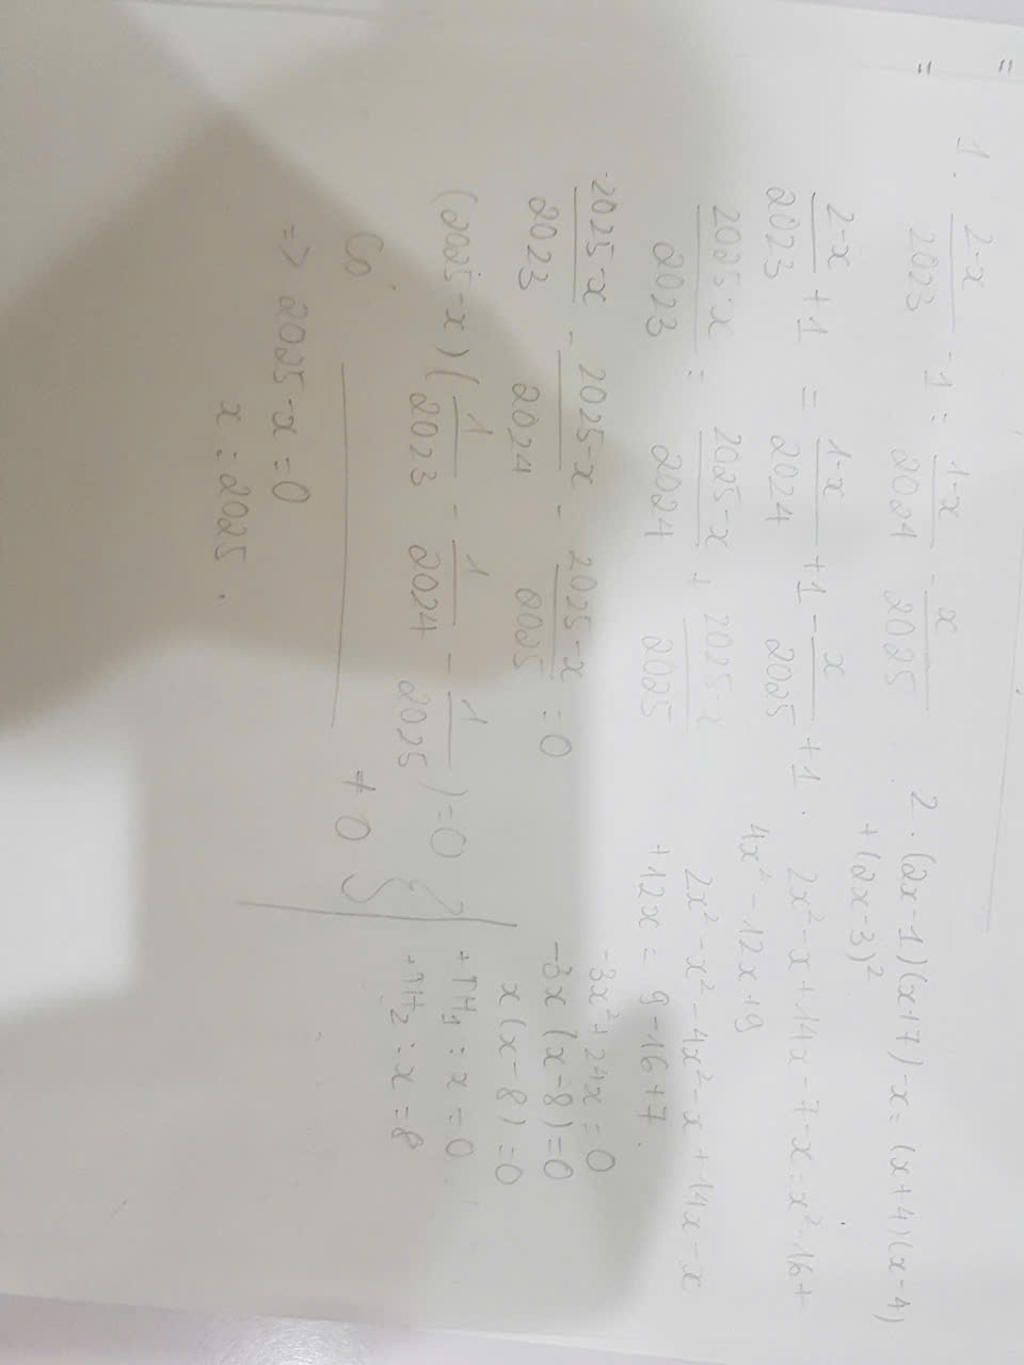 1. \frac{2-x}{2023} - 1 = \frac{1-x}{2024} - \frac{x}{2025}
\frac{2-x}{2023} + 1 = \frac{1-x}{2024} + 1 - \frac{x}{2025} + 1.
\frac{2025-x}{2023} = \frac{2025-x}{2024} + \frac{2025-x}{2025}
\frac{2025-x}{2023} - \frac{2025-x}{2024} - \frac{2025-x}{2025} = 0
(2025-x)(\frac{1}{2023} - \frac{1}{2024} - \frac{1}{2025}) = 0
Có ≠ 0
=> 2025-x=0
x = 2025.
2. (2x-1)(x+7)-x=(x+4)(x-4)
+(2x-3)²
2x²-x+14x-7-x=x²-16+
4x²-12x+9
2x²-x²-4x²-x+14x-x
+12x = 9-16+7.
-3x²+24x=0
-3x(x-8)=0
x(x-8)=0
+TH₁: x=0
+TH₂: x=8